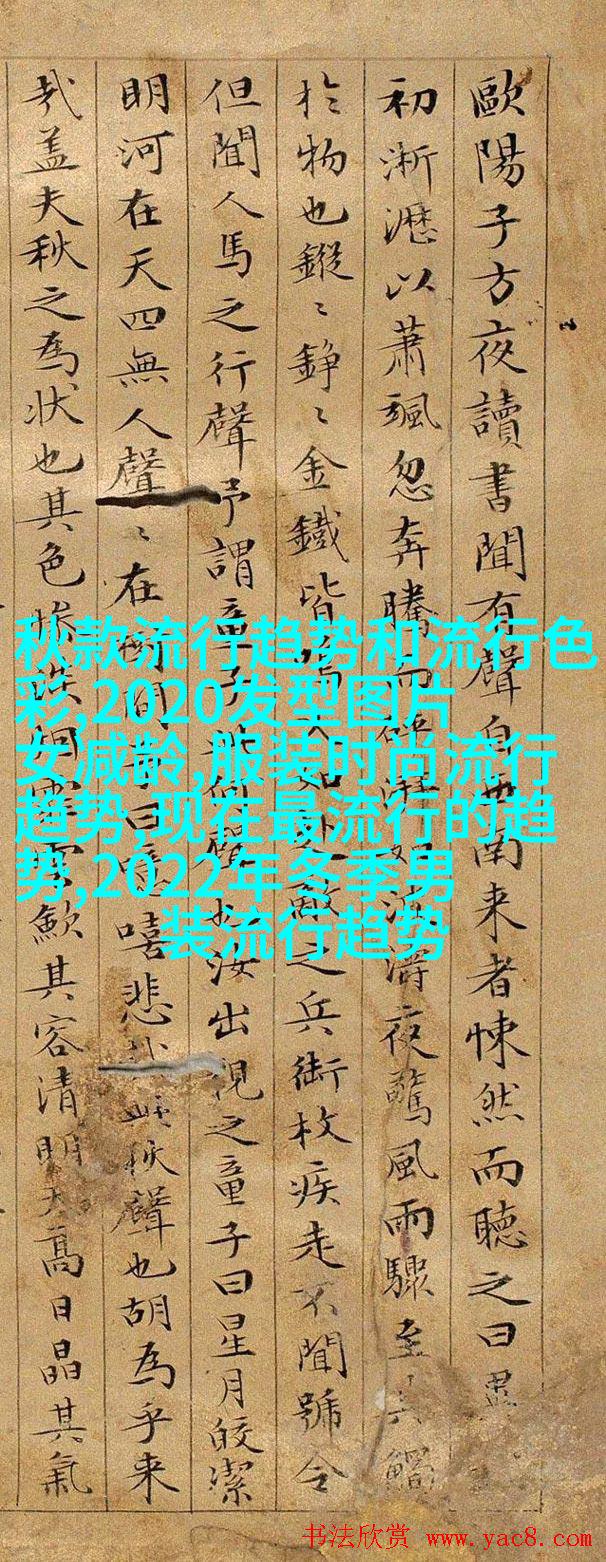 歐陽子方夜讀書聞有聲自西南来者悚然而聽之曰異
初淅瀝以蕭颯忽奔騰而砰湃如波濤夜驚風雨驟至其觸
於物也鏦〻錚〻金鐵皆鳴又如赴敵之兵銜枚疾走不聞號令
但聞人馬之行聲予謂童子此何聲也汝出視之童子曰星月皎潔
明河在天四無人聲〻在樹間予曰噫嘻悲哉此秋聲也胡為乎来
哉盖夫秋之為状也其色惨淡烟霏雲歛其容清明天高日晶其氣
秋款流行趋势和流行色
彩,2020发型图片
女减龄,服装时尚流行
趋势,现在最流行的趋
势,2022年冬季男
装流行趋势
书法欣赏 www.yac8.com